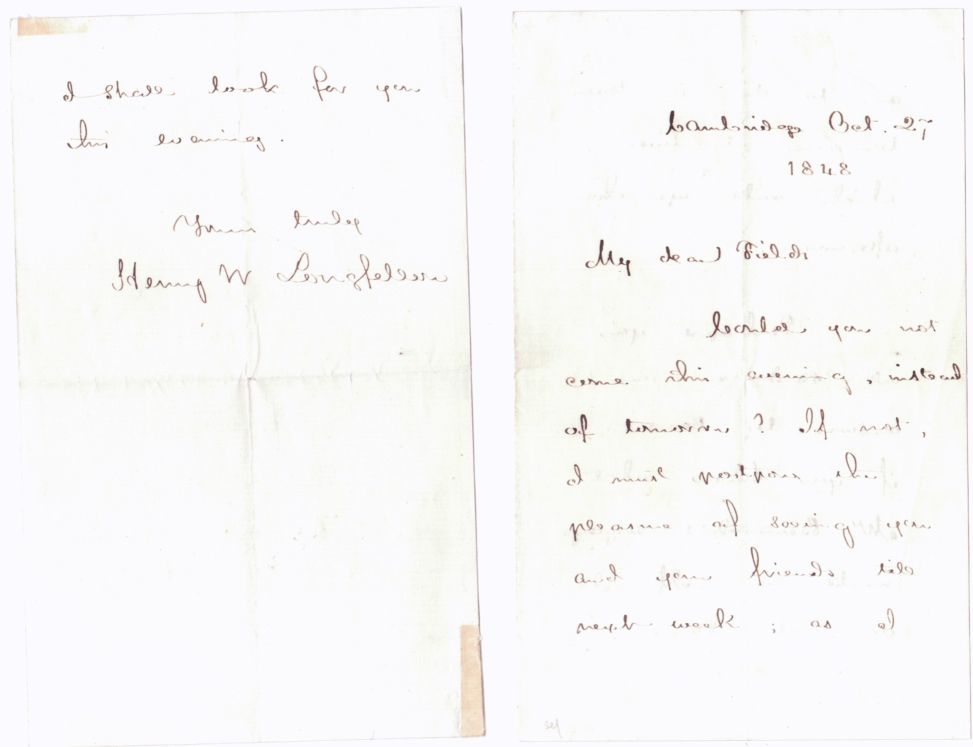 Cambridge Oct. 27
1848
My dear Fields
Could you not
come this evening, instead
of tomorrow? If not,
I must postpone the
pleasure of seeing you
and your friends till
next week; as I
I shall look for you
this evening.
Yours truly
Henry W Longfellow